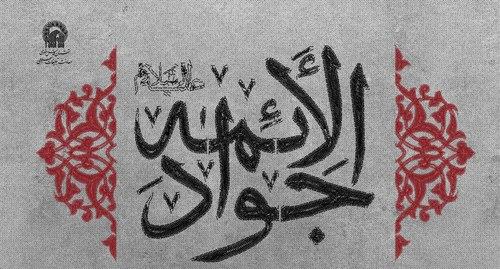 جواد
الأئمة
عليه السلام